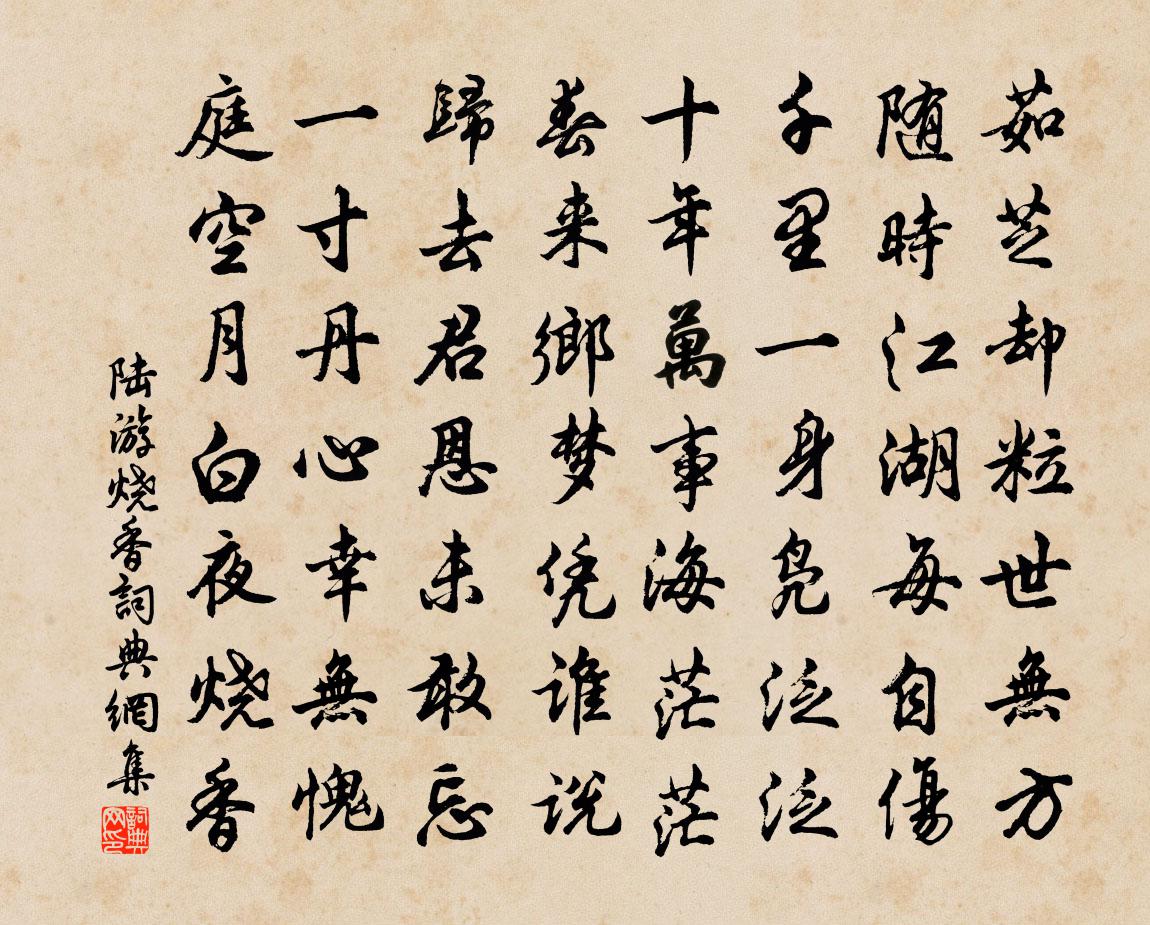 茹芝却粒世無方
随時江湖每自傷
千里一身凫泛泛
十年萬事海茫茫
春来鄉梦凭谁说
歸去君恩未敢忘
一寸丹心幸無愧
庭空月白夜烧香
陆游烧香詞典網集
詞典网印